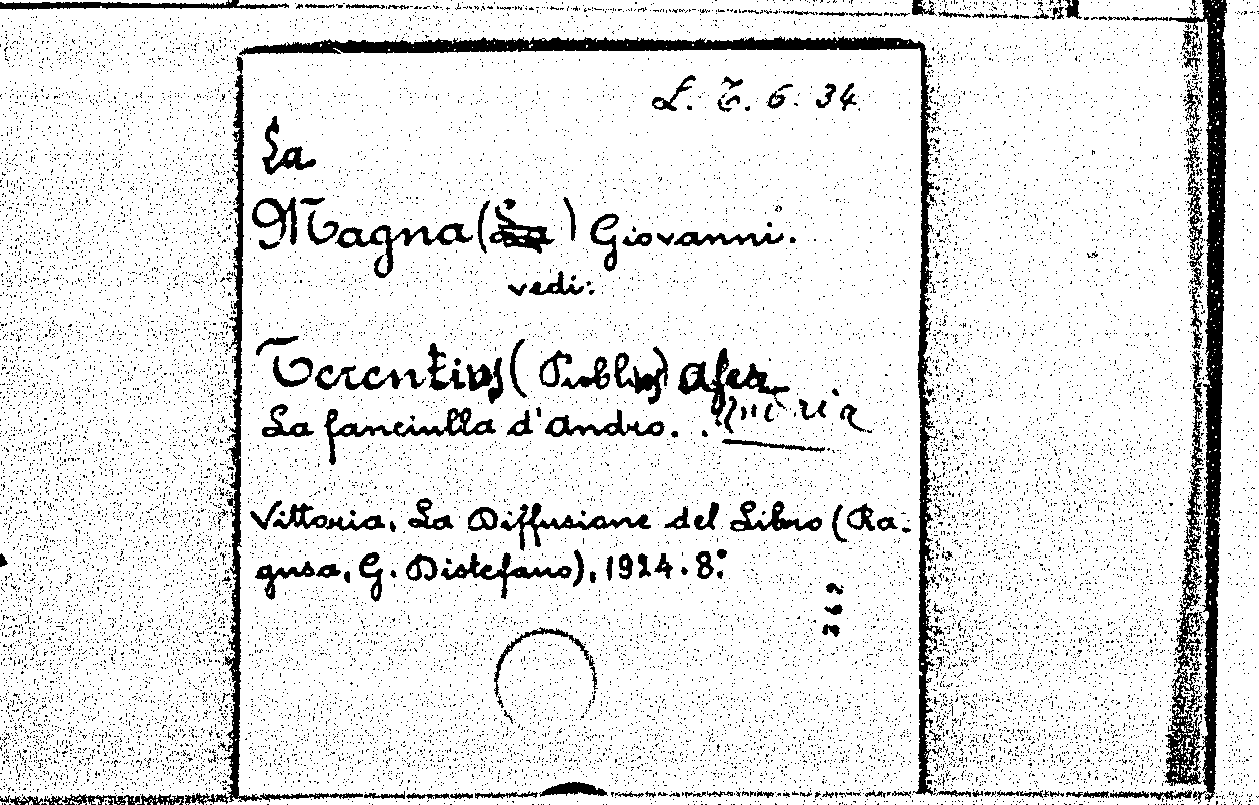 L. T. 6. 34
La
Magna (La) Giovanni.
vedi:
Terentius (Publius) Afer
La fanciulla d'Andro. . .
Vittoria, La Diffusione del Libro (Ra-
gusa, G. Distefano), 1924. 8°.
262